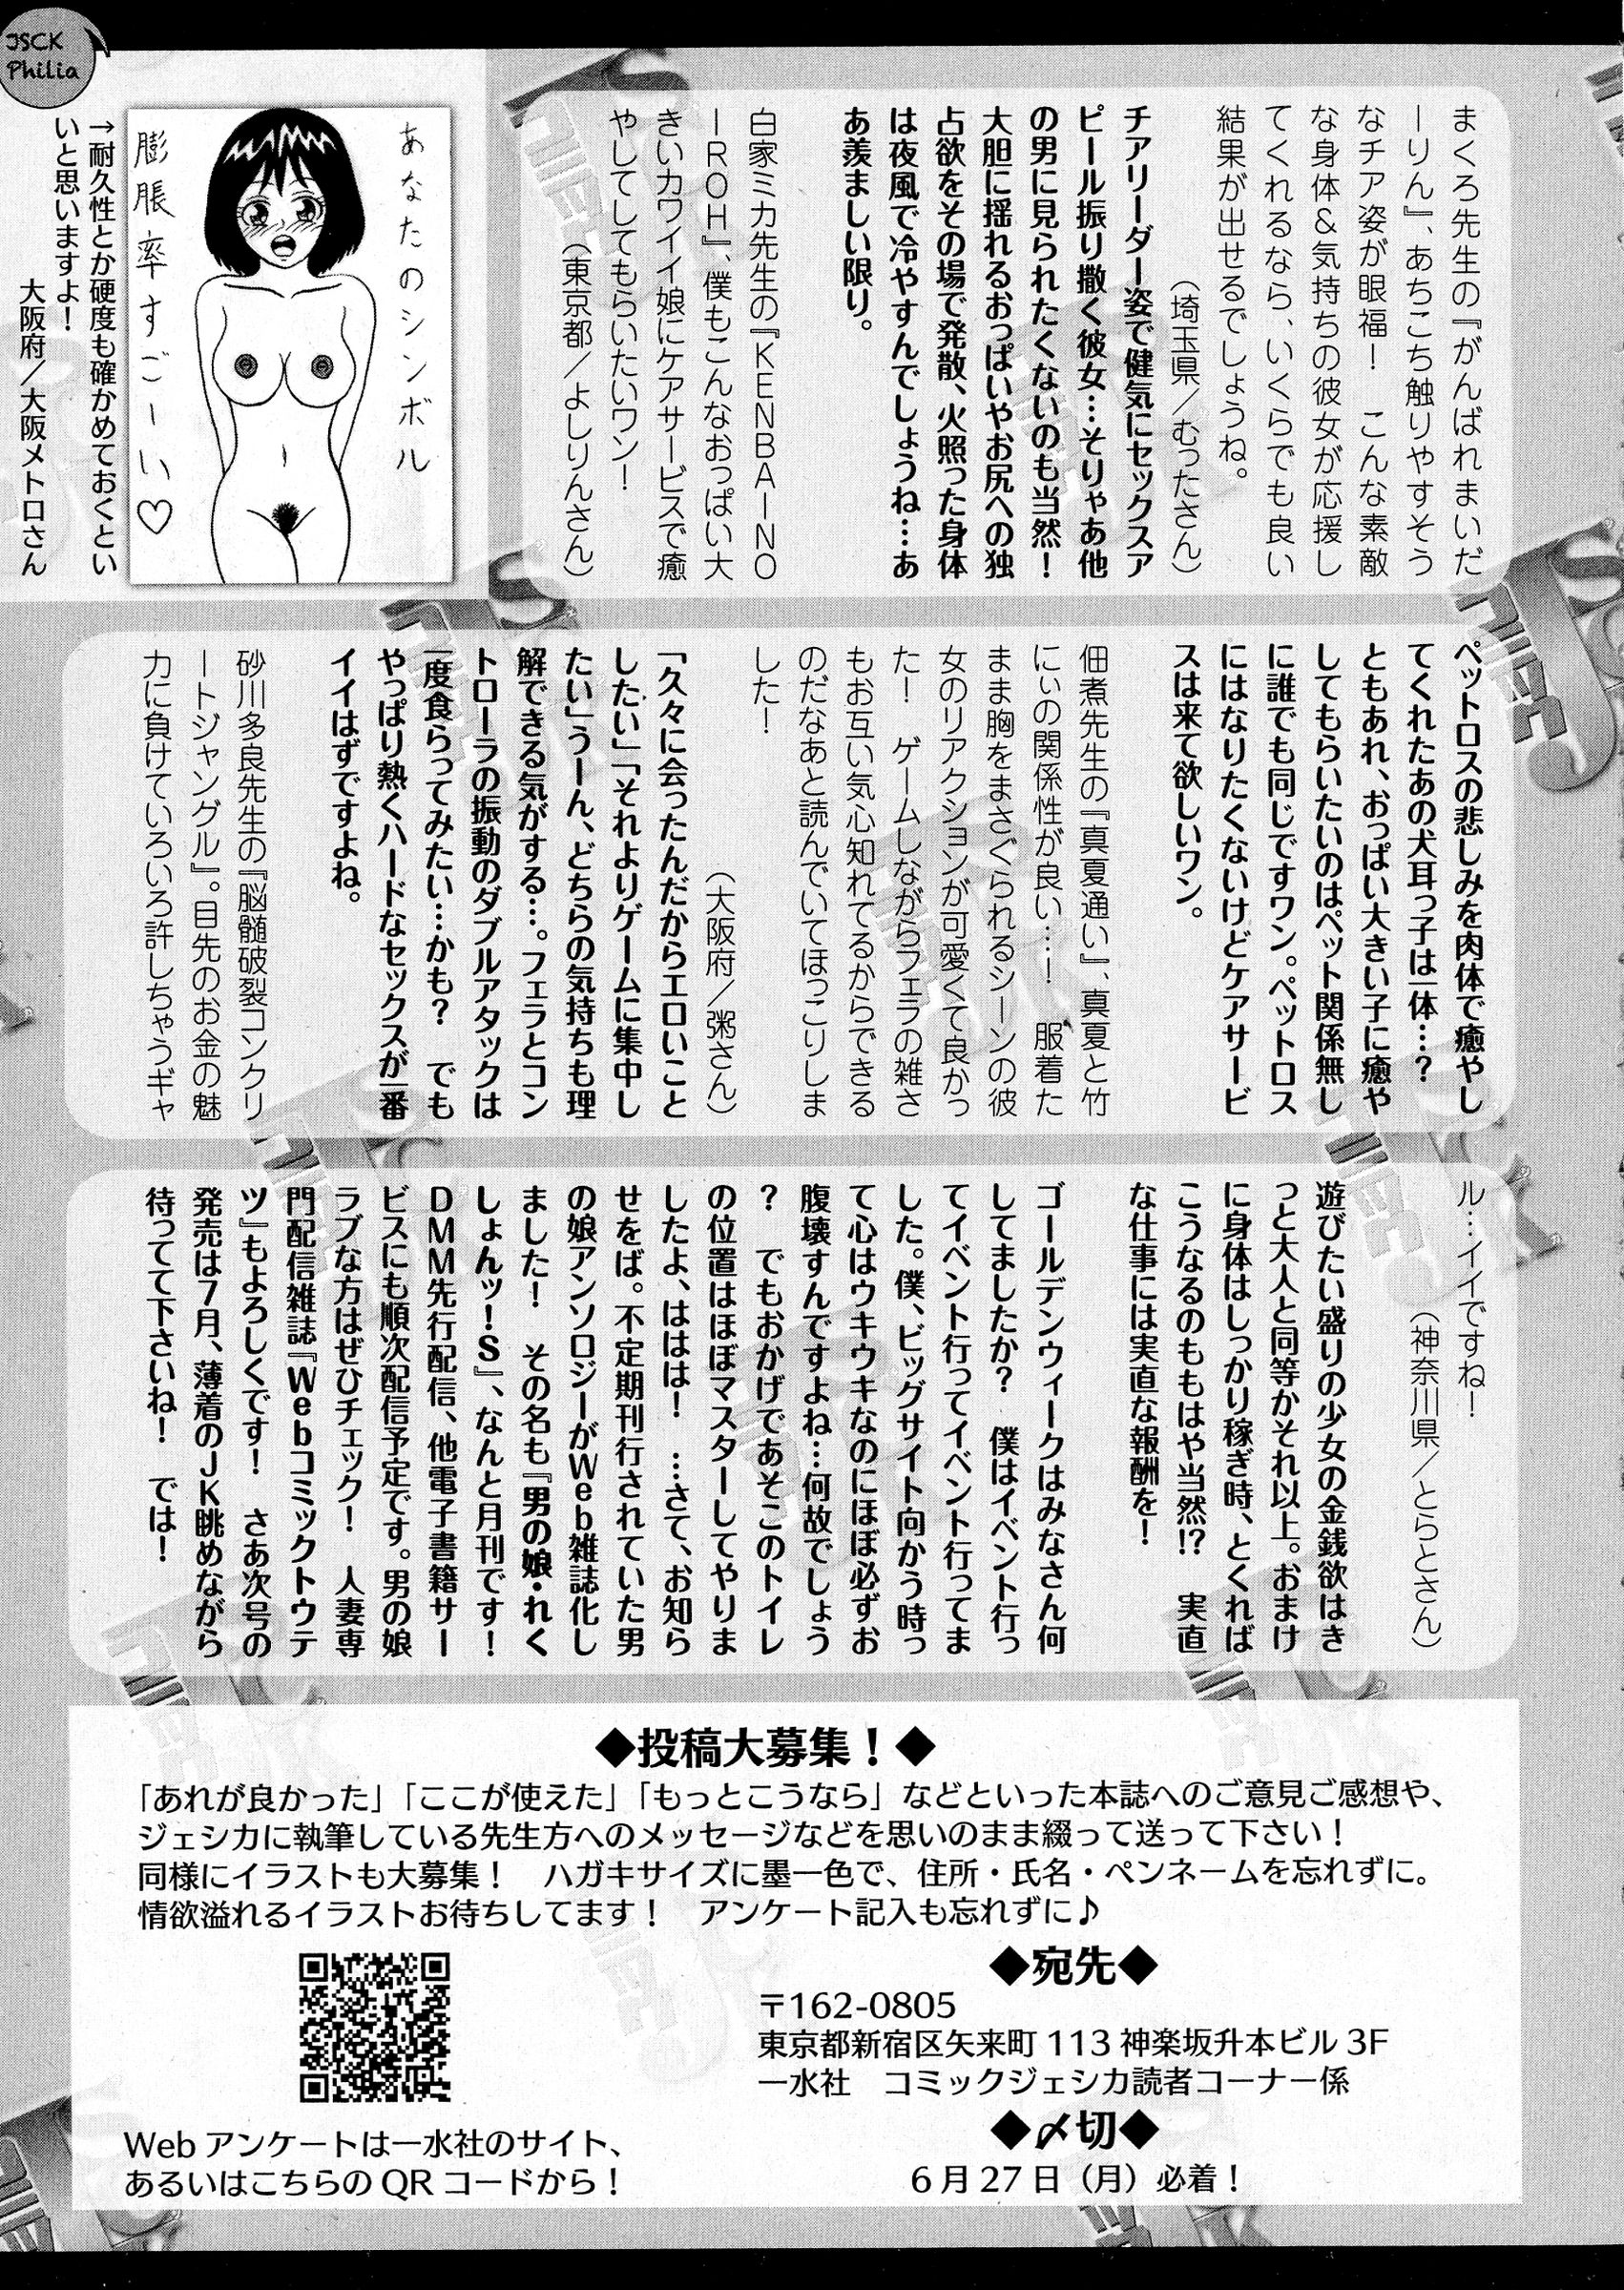 JSCK
Philia
まくろ先生の『がんばれまいだ
ーりん』、あちこち触りやすそう
なチア姿が眼福！　こんな素敵
な身体＆気持ちの彼女が応援し
てくれるなら、いくらでも良い
結果が出せるでしょうね。
（埼玉県／むったさん）
チアリーダー姿で健気にセックスア
ピール振り撒く彼女…そりゃあ他
の男に見られたくないのも当然！
大胆に揺れるおっぱいやお尻への独
占欲をその場で発散、火照った身体
は夜風で冷やすんでしょうね…あ
あ羨ましい限り。
白家ミカ先生の『KENBAーNO
ーROH』、僕もこんなおっぱい大
きいカワイイ娘にケアサービスで癒
やしてしてもらいたいワン！
（東京都／よしりんさん）
あなたのシンボル
膨脹率すごーい♡
→耐久性とか硬度も確かめておくとい
いと思いますよ！
大阪府／大阪メトロさん
ペットロスの悲しみを肉体で癒やし
てくれたあの犬耳っ子は一体…？
ともあれ、おっぱい大きい子に癒や
してもらいたいのはペット関係無し
に誰でも同じですワン。ペットロス
にはなりたくないけどケアサービ
スは来て欲しいワン。
佃煮先生の『真夏通い』、真夏と竹
にぃの関係性が良い…！　服着た
まま胸をまさぐられるシーンの彼
女のリアクションが可愛くて良かっ
た！　ゲームしながらフェラの雑さ
もお互い気心知れてるからできる
のだなあと読んでいてほっこりしま
した！
（大阪府／粥さん）
「久々に会ったんだからエロいこと
したい」「それよりゲームに集中し
たい」うーん、どちらの気持ちも理
解できる気がする…。フェラとコン
トローラの振動のダブルアタックは
一度食らってみたい…かも？　でも
やっぱり熱くハードなセックスが一番
イイはずですよね。
ゴールデンウィークはみなさん何
してましたか？　僕はイベント行っ
てイベント行ってイベント行ってま
した。僕、ビッグサイト向かう時っ
て心はウキウキなのにほぼ必ずお
腹壊すんですよね…何故でしょう
？　でもおかげであそこのトイレ
の位置はほぼマスターしてやりま
したよ、ははは！　…さて、お知ら
せをば。不定期刊行されていた男
の娘アンソロジーがWeb雑誌化し
ました！　その名も『男の娘・れく
しょんッ！S』、なんと月刊です！
DMM先行配信、他電子書籍サー
ビスにも順次配信予定です。男の娘
ラブな方はぜひチェック！　人妻専
門配信雑誌『Webコミックトウテ
ツ』もよろしくです！
◆投稿大募集！◆
「あれが良かった」「ここが使えた」「もっとこうなら」などといった本誌へのご意見ご感想や、
ジェシカに執筆している先生方へのメッセージなどを思いのまま綴って送って下さい！
同様にイラストも大募集！　ハガキサイズに墨一色で、住所・氏名・ペンネームを忘れずに。
情欲溢れるイラストお待ちしてます！　アンケート記入も忘れずに♪
◆宛先◆
〒162-0805
東京都新宿区矢来町 113 神楽坂升本ビル 3F
一水社　コミックジェシカ読者コーナー係
◆〆切◆
6 月 27 日（月）必着！
Web アンケートは一水社のサイト、
あるいはこちらの QR コードから！